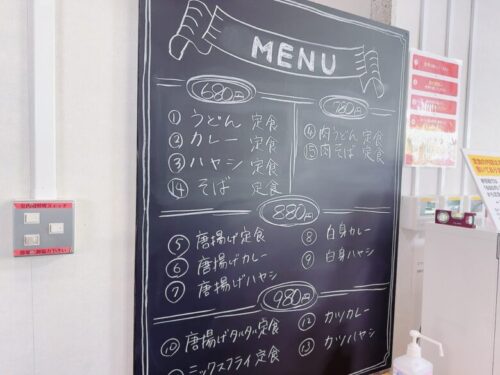 MENU
680円
① うどん 定食
② カレー 定食
③ ハヤシ 定食
⑭ そば 定食
780円
④ 肉うどん 定食
⑮ 肉そば 定食
880円
⑤ 唐揚げ定食
⑥ 唐揚げカレー
⑦ 唐揚げハヤシ
⑧ 白身カレー
⑨ 白身ハヤシ
980円
⑩ 唐揚げタルタル定食
ミックスフライ定食
⑫ カツカレー
⑬ カツハヤシ